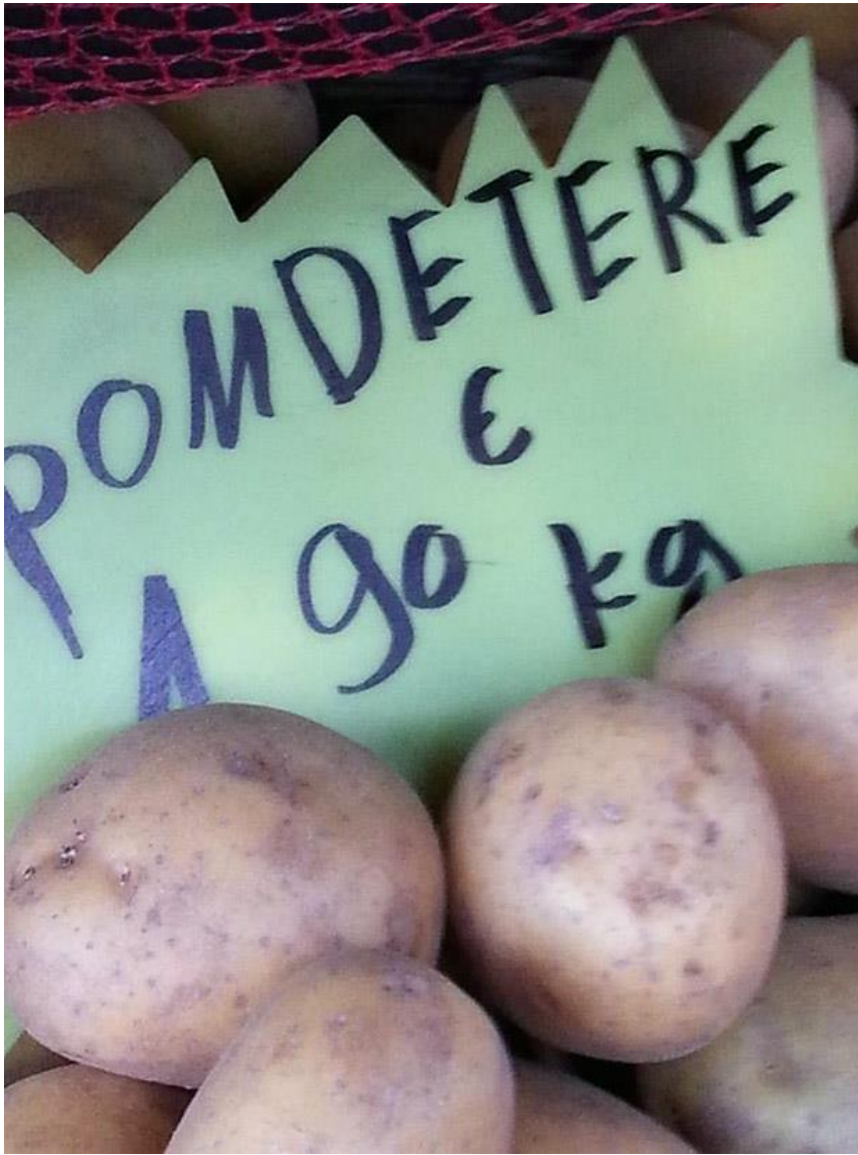 POMDETERE
€
1 90 kg